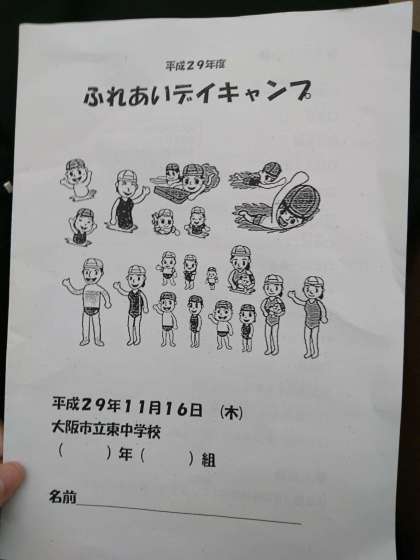 平成29年度
ふれあいデイキャンプ
平成29年11月16日 (木)
大阪市立東中学校
( )年( )組
名前